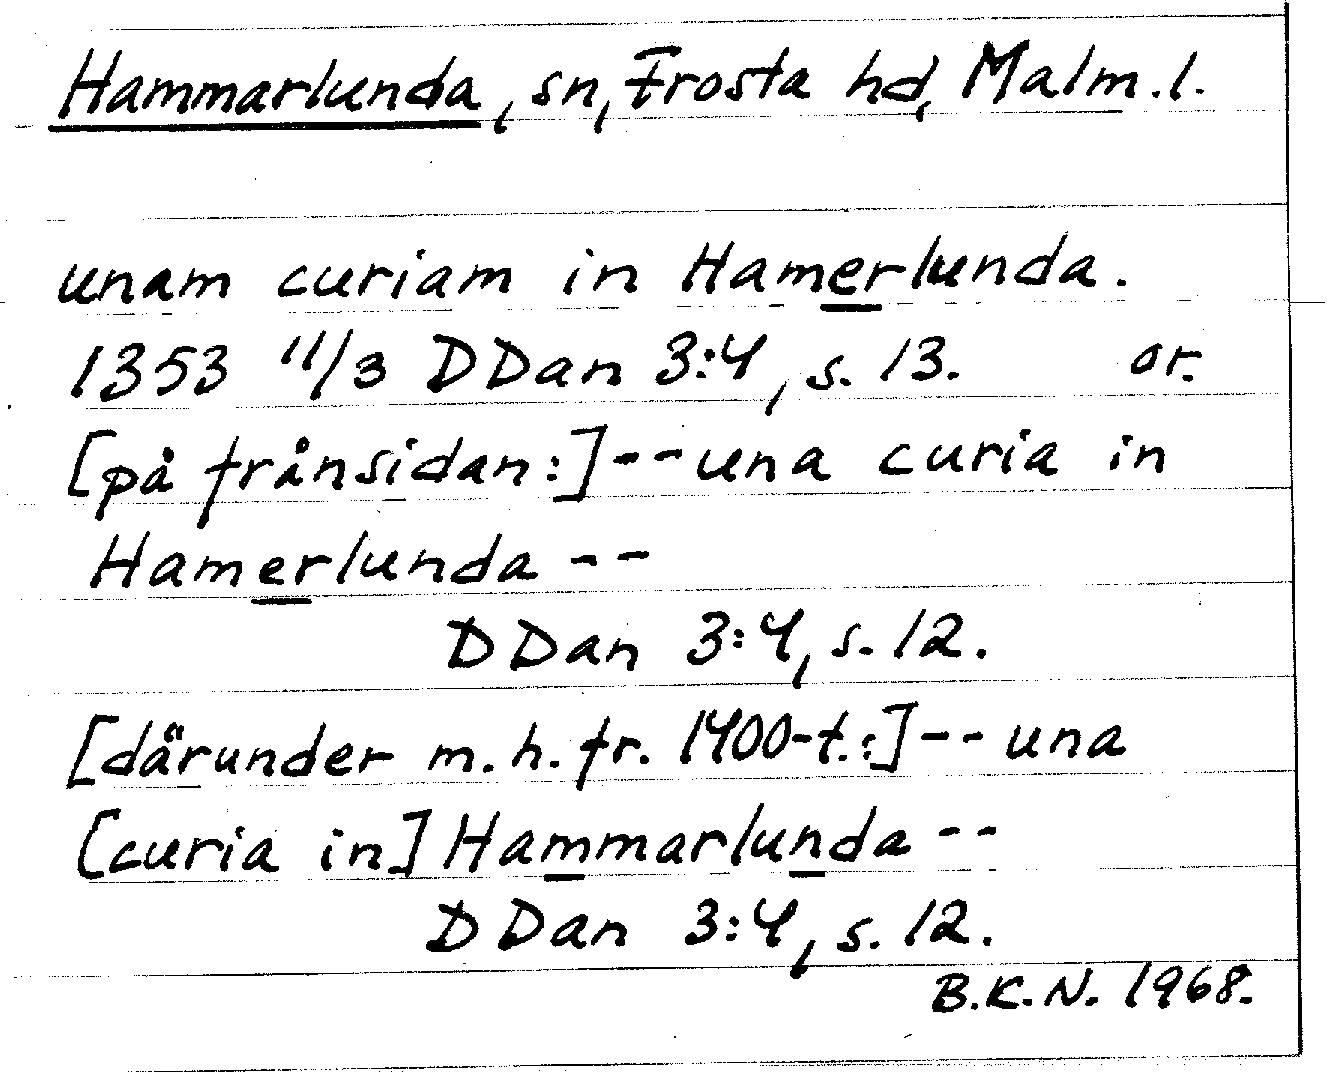 Hammarlunda, sn, Frosta hd, Malm. l.
unam curiam in Hamerlunda.
1353 11/3 DDan 3:4, s. 13. or.
[på frånsidan:]--una curia in
Hamerlunda --
DDan 3:4, s. 12.
[därunder m. h. fr. 1400-t.:]-- una
[curia in] Hammarlunda --
DDan 3:4, s. 12.
B.K.N. 1968.